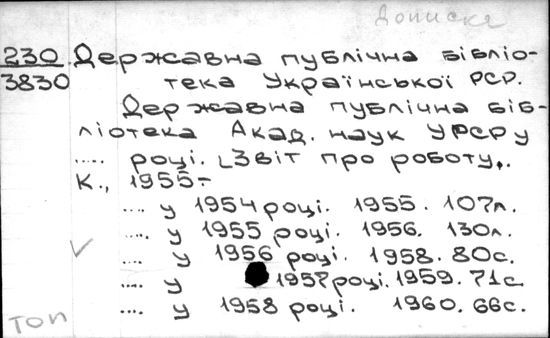 Дописка
230 Державна публічна бібліо-
3830 тека Української РСР.
Державна публічна біб-
ліотека Акад. наук УРСР у
.... році. Звіт про роботу..
К., 1955-
.... у 1954 році. 1955. 107л.
.... у 1955 році. 1956. 130л.
.... у 1956 році. 1958. 80с.
.... у 1957 році. 1959. 71с.
.... у 1958 році. 1960. 66с.
топ